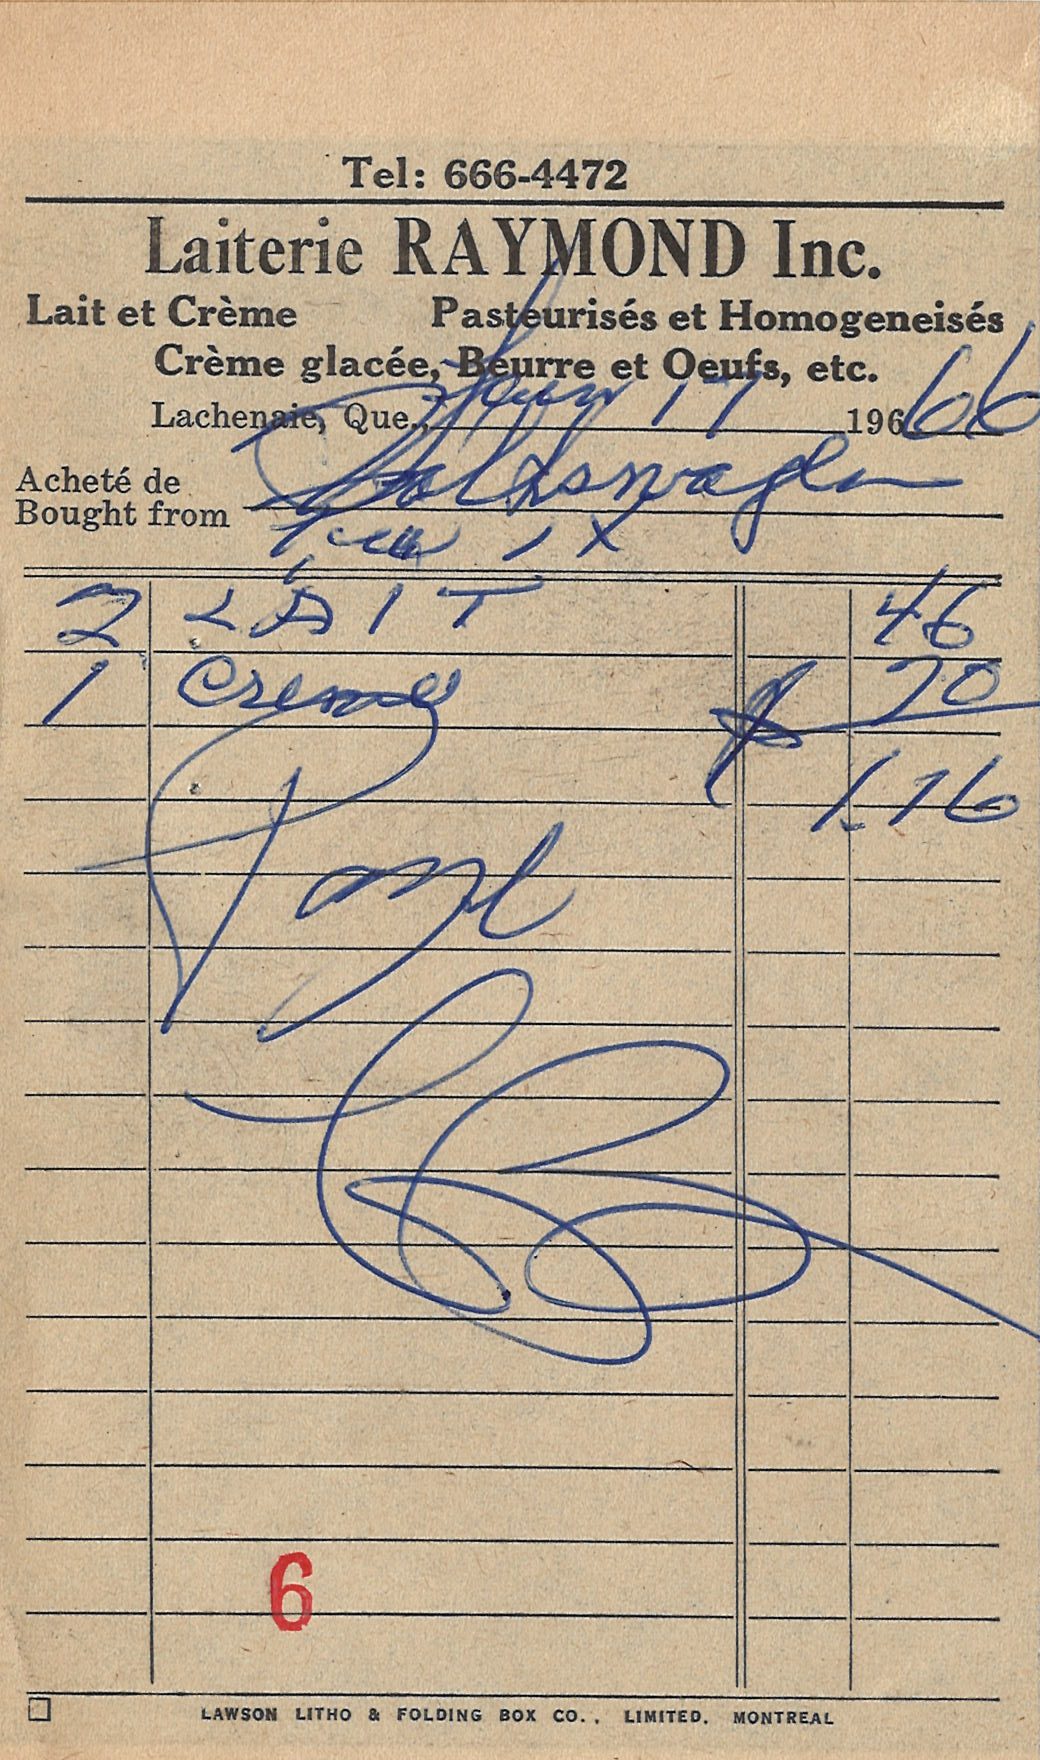 Tel: 666-4472
Laiterie RAYMOND Inc.
Lait et Crème Pasteurisés et Homogeneisés
Crème glacée, Beurre et Oeufs, etc.
Lachenaie, Que., 17 196 66
Acheté de
Bought from Volkswagen
2 LAIT 46
1 Creme 70
1.16
Payé
6
LAWSON LITHO & FOLDING BOX CO., LIMITED, MONTREAL